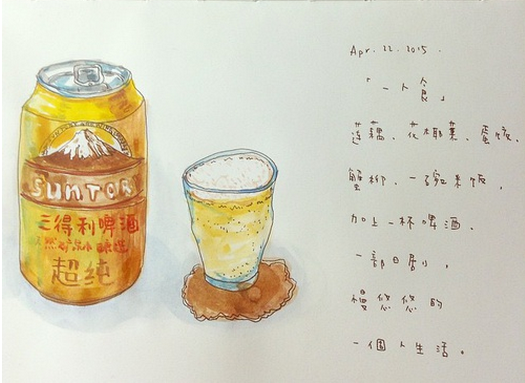 SUNTOR
三得利啤酒
然矿泉水酿造
超纯
Apr. 22. 2015.
「一人食」
莲藕、花椰菜、蛋饺、
蟹柳、一碗米饭,
加上一杯啤酒,
一部日剧,
慢悠悠的
一個人生活。